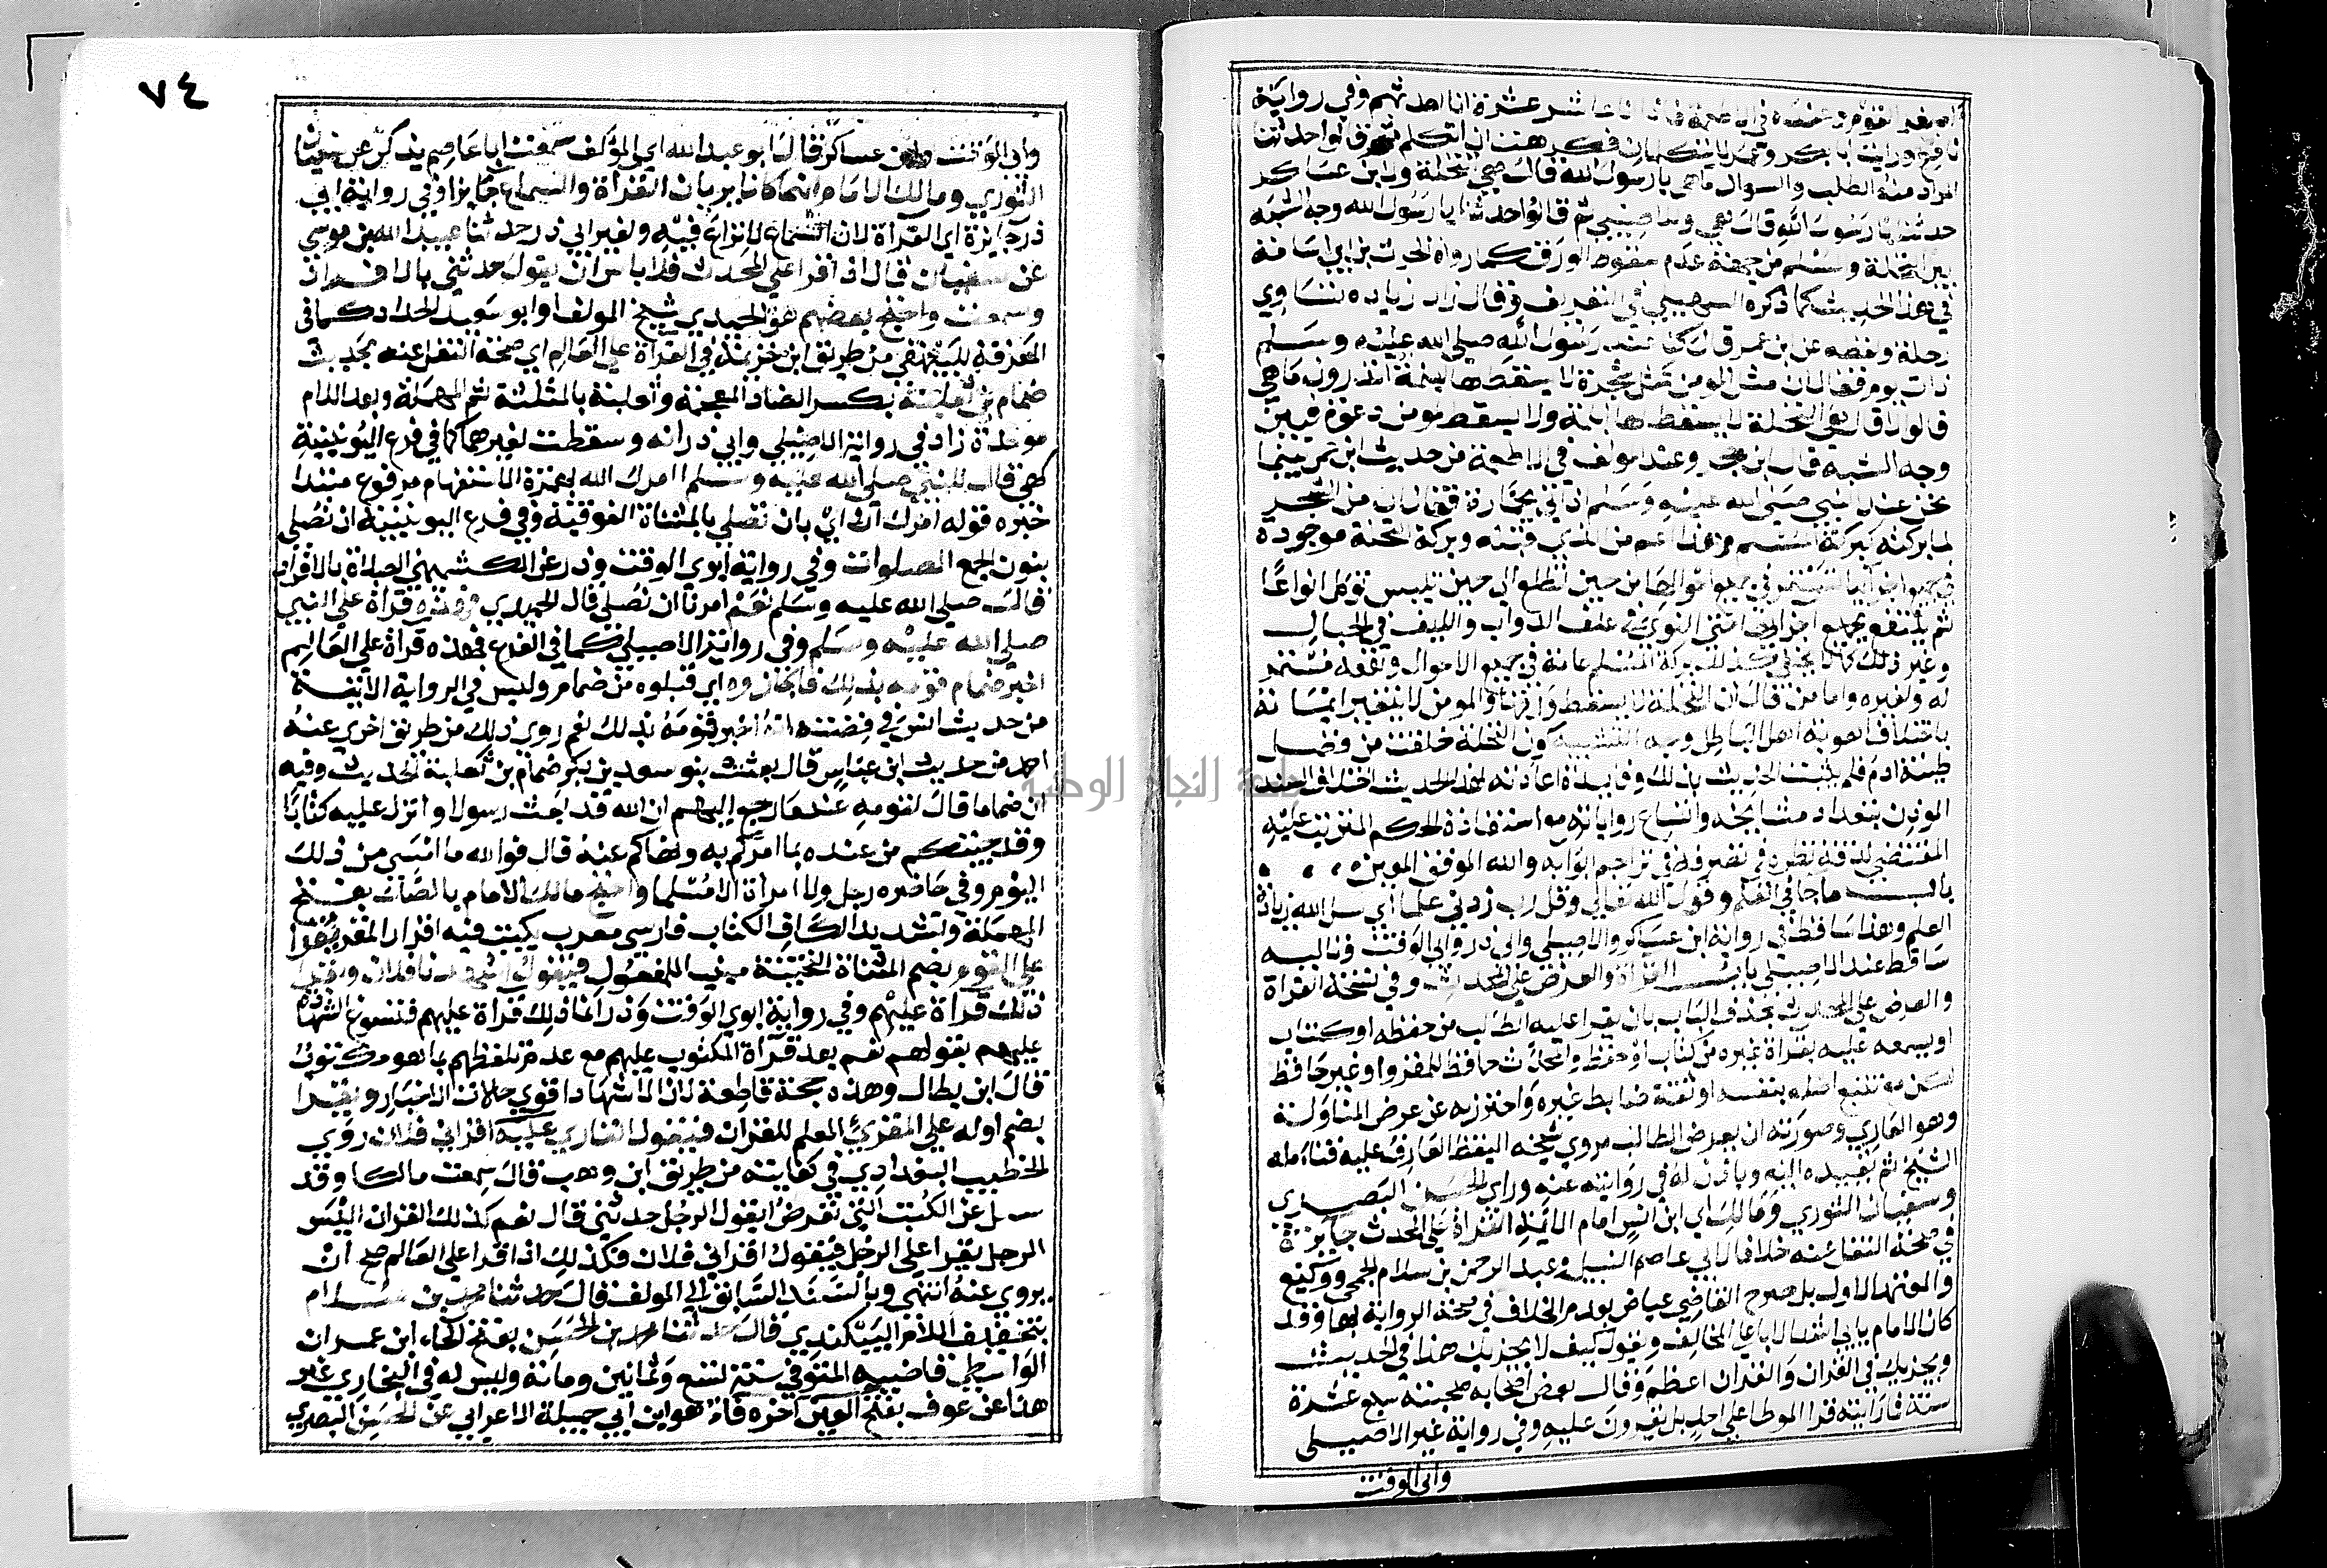 اصغر القوم وعنده في الاطعمة فاذا انا عاشر عشرة انا احدثهم وفي رواية
نافع ورايت ابا بكر وعمر لا يتكلمان فكرهت ان اتكلم ثم قالوا حدثنا
المراد منه الطلب والسوال ما هي يا رسول الله قال هي النخلة ولابن عساكر
حدثنا يا رسول الله قال هي وللاصيلي ثم قالوا حدثنا يا رسول الله وجه الشبه
بين النخلة والمسلم من جهة عدم سقوط الورق كما رواه الحرث بن ابي اسامة
في هذا الحديث كما ذكره السهيلي في التعريف وقال زاد زيادة تساوي
رحلة ولفظه عن ابن عمر قال كنا عند رسول الله صلى الله عليه وسلم
ذات يوم فقال ان مثل المومن كمثل شجرة لا يسقط لها ابلمة اتدرون ما هي
قالوا لا قال هي النخلة لا يسقط لها ابلمة ولا يسقط لمومن دعوة فبين
وجه الشبه قال ابن حجر وعند المولف في الاطعمة من حديث ابن عمر بينما
نحن عند النبي صلى الله عليه وسلم اذ اتي بجمارة فقال ان من الشجر
لما بركته كبركة المسلم وهذا اعم من الذي قبله وبركة النخلة موجودة
في جميع اجزائها تستمر في جميع احوالها من حين تطلع الى حين تيبس توكل انواعا
ثم ينتفع بجميع اجزائها حتى النوى في علف الدواب والليف في الحبال
وغير ذلك مما لا يخفى وكذلك بركة المسلم عامة في جميع الاحوال ونفعه مستمر
له ولغيره واما من قال ان النخلة لا يسقط ورقها والمومن لا يتغير ايمانه
باختلاف اهوية اهل الباطل وجه التشبيه كون النخلة خلقت من فضل
طينة ادم فلم يثبت الحديث بذلك وفايدة اعادته لهذا الحديث اختلاف السند
الموذن بتعداد مشايخه واتساع رواياته مع استفادة الحكم المترتب عليه
المقتضي لدقة نظره في تصرفه في تراجم ابوابه والله الموفق المعين
باب ما جا في العلم وقول الله تعالى وقل رب زدني علما اي سل الله زيادة
العلم وهذا ساقط في رواية ابن عساكر والاصيلي وابي ذر وابي الوقت وتاليه
ساقط عند الاصيلي باب القراة والعرض على المحدث وفي نسخة القراة
والعرض على المحدث بحذف الباب بان يقرا عليه الطالب من حفظه او كتاب
او يسمعه عليه بقراة غيره من كتاب او حفظ والمحدث حافظ للمقروا او غير حافظ
لكن مع تتبع اصله بنفسه او ثقة ضابط غيره واحترز به عن عرض المناولة
وهو العاري وصورته ان يعرض الطالب مروي شيخه اليقظ العارف عليه فتامله
الشيخ ثم يعيده اليه وياذن له في روايته عنه وراي الحسن البصري
وسفيان الثوري ومالك اي ابن انس امام الائمة القراة على المحدث جايزة
في صحة النقل عنه خلافا لابي عاصم النبيل وعبد الرحمن بن سلام الجمحي ووكيع
والمعتمد الاول بل صرح القاضي عياض بعدم الخلاف في صحة الرواية بها وقد
كان الامام يابى اشد الابا على المخالف ويقول كيف لا يجزيك هذا في الحديث
ويجزيك في القران والقران اعظم وقال بعض اصحابه صحبته سبع عشرة
سنة فما رايته قرا الموطا على احد بل يقرون عليه وفي رواية غير الاصيلي
وابي الوقت
٧٤
وابي الوقت وابن عساكر قال ابو عبد الله اي المؤلف سمعت ابا عاصم يذكر عن سفيان
الثوري ومالك الامام انهما كانا يريان القراة والسماع جايزا وفي رواية ابي
ذر جايزة اي القراة لان السماع لا نزاع فيه ولغير ابي ذر حدثنا عبيد الله بن موسى
عن سفيان قال اذا قرا على المحدث فلا باس ان يقول حدثني بالافراد
وسمعت واحتج بعضهم هو الحميدي شيخ المولف او ابو سعيد الحداد كما في
المعرفة للبيهقي من طريق ابن خزيمة في القراة على العالم اي صحة النقل عنه بحديث
ضمام بن ثعلبة بكسر الضاد المعجمة وثعلبة بالمثلثة ثم المهملة وبعد اللام
موحدة زاد في رواية الاصيلي وابي ذر انه وسقطت لغيرهما كما في فرع اليونينية
كهي قال للنبي صلى الله عليه وسلم االله امرك الله بهمزة الاستفهام مرفوع مبتدا
خبره قوله امرك ان اي بان تصلي بالمثناة الفوقية وفي فرع اليونينية ان نصلي
بنون الجمع الصلوات وفي رواية ابوي الوقت وذر عن الكشميهني الصلاة بالافراد
قال صلى الله عليه وسلم نعم امرنا ان نصلي قال الحميدي فهذه قراة على النبي
صلى الله عليه وسلم وفي رواية الاصيلي كما في الفرع فهذه قراة على العالم
اخبر ضمام قومه بذلك فاجازوه اي قبلوه من ضمام وليس في الرواية الاتية
من حديث انس في قصته انه اخبر قومه بذلك نعم روى ذلك من طريق اخرى عند
احمد من حديث ابن عباس قال بعثت بنو سعد بن بكر ضمام بن ثعلبة الحديث وفيه
ان ضماما قال لقومه عندما رجع اليهم ان الله قد بعث رسولا وانزل عليه كتابا
وقد جيتكم من عنده بما امركم به ونهاكم عنه قال فوالله ما امسى من ذلك
اليوم وفي حاضره رجل ولا امراة الا مسلما واحتج مالك الامام بالصك بفتح
المهملة وتشديد الكاف الكتاب فارسي معرب يكتب فيه اقرار المقر يقرا
على القوم بضم المثناة التحتية مبنيا للمفعول فيقولون اشهدنا فلان ويقرا
ذلك قراة عليهم وفي رواية ابوي الوقت وذر انما ذلك قراة عليهم فتسوغ الشهادة
عليهم بقولهم نعم بعد قراة المكتوب عليهم مع عدم تلفظهم بما هو مكتوب
قال ابن بطال وهذه حجة قاطعة لان الاشهاد اقوى حالات الاخبار ويقرا
بضم اوله على المقرئ المعلم للقران فيقول القاري عليه اقراني فلان روي
الخطيب البغدادي في كفايته من طريق ابن وهب قال سمعت مالكا وقد
سئل عن الكتب التي تعرض ايقول الرجل حدثني قال نعم كذلك القران اليس
الرجل يقرا على الرجل فيقول اقراني فلان فكذلك اذا قرا على العالم صح ان
يروي عنه انتهى وبالسند السابق الى المولف قال حدثنا محمد بن سلام
بتخفيف اللام البيكندي قال حدثنا محمد بن الحسن بفتح الحاء ابن عمران
الواسطي قاضيها المتوفي سنة تسع وثمانين ومائة وليس له في البخاري غير
هذا عن عوف بفتح العين اخره فاء هو ابن ابي جميلة الاعرابي عن الحسن البصري
جامعة النجاح الوطنية